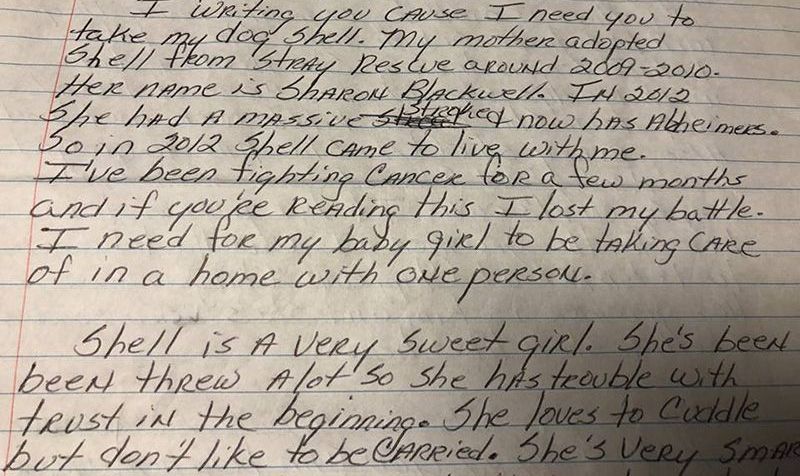 I writing you cause I need you to
take my dog Shell. My mother adopted
Shell from Stray Rescue around 2009-2010.
Her name is Sharon Blackwell. In 2012
She had a massive Stroked now has Alheimers.
So in 2012 Shell came to live with me.
I've been fighting Cancer for a few months
and if you're Reading this I lost my battle.
I need for my baby girl to be taking care
of in a home with one person.
Shell is a very sweet girl. She's been
been threw alot so She has trouble with
trust in the beginning. She loves to Cuddle
but don't like to be Carried. She's very smar